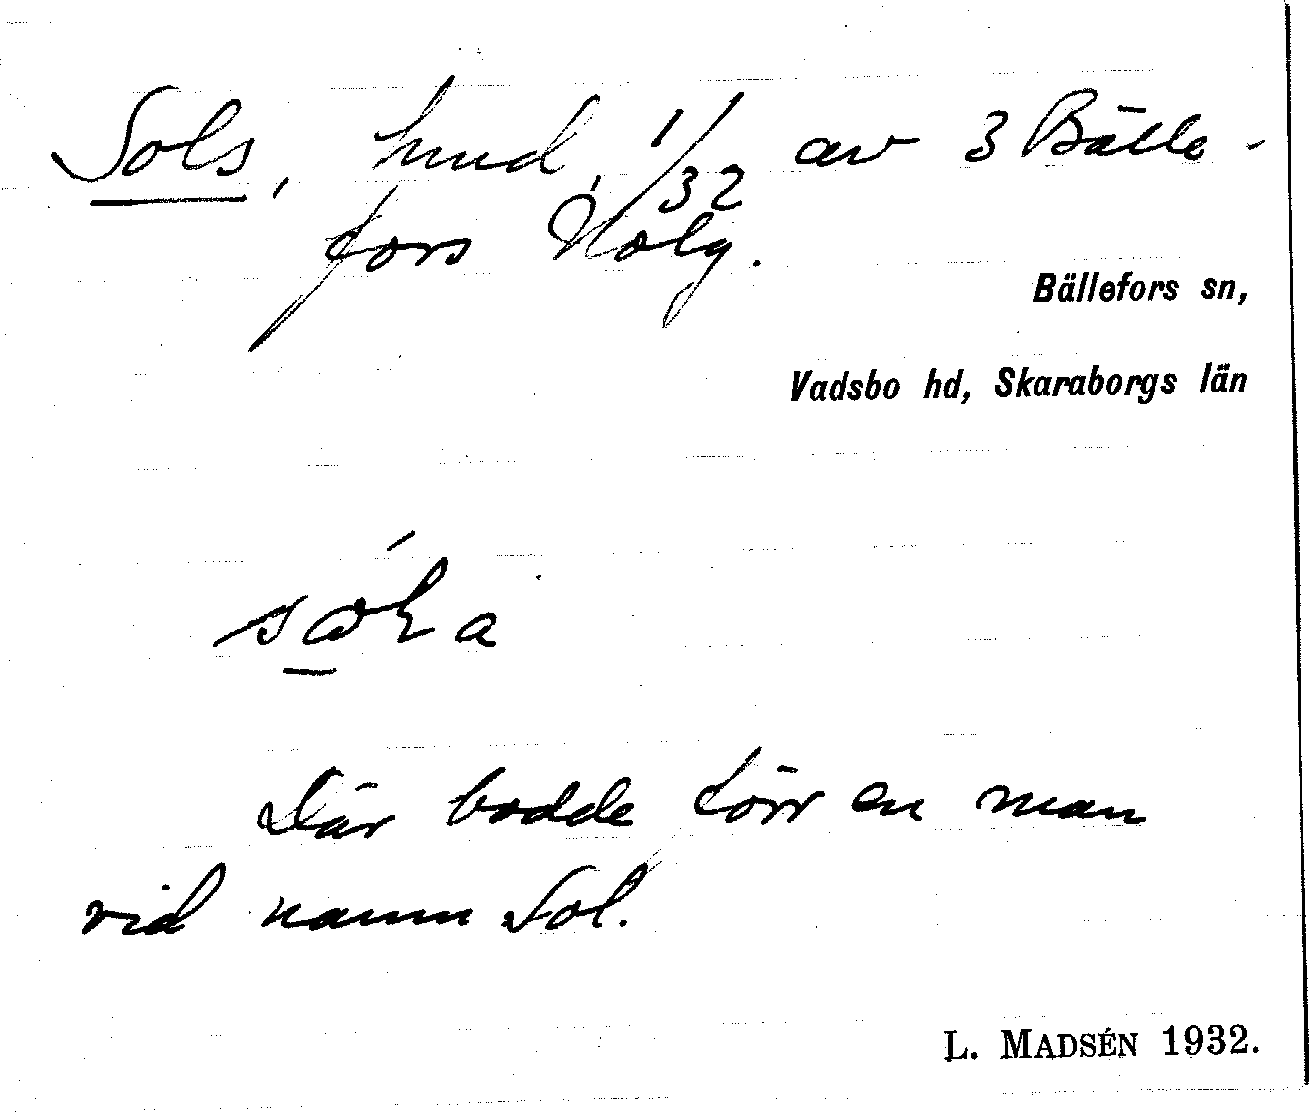 Sols, hmd, 1/32 av 3 Bälle-
fors Holg.
Bällefors sn,
Vadsbo hd, Skaraborgs län
Där bodde förr en man
vid namn Sol.
L. MADSÉN 1932.